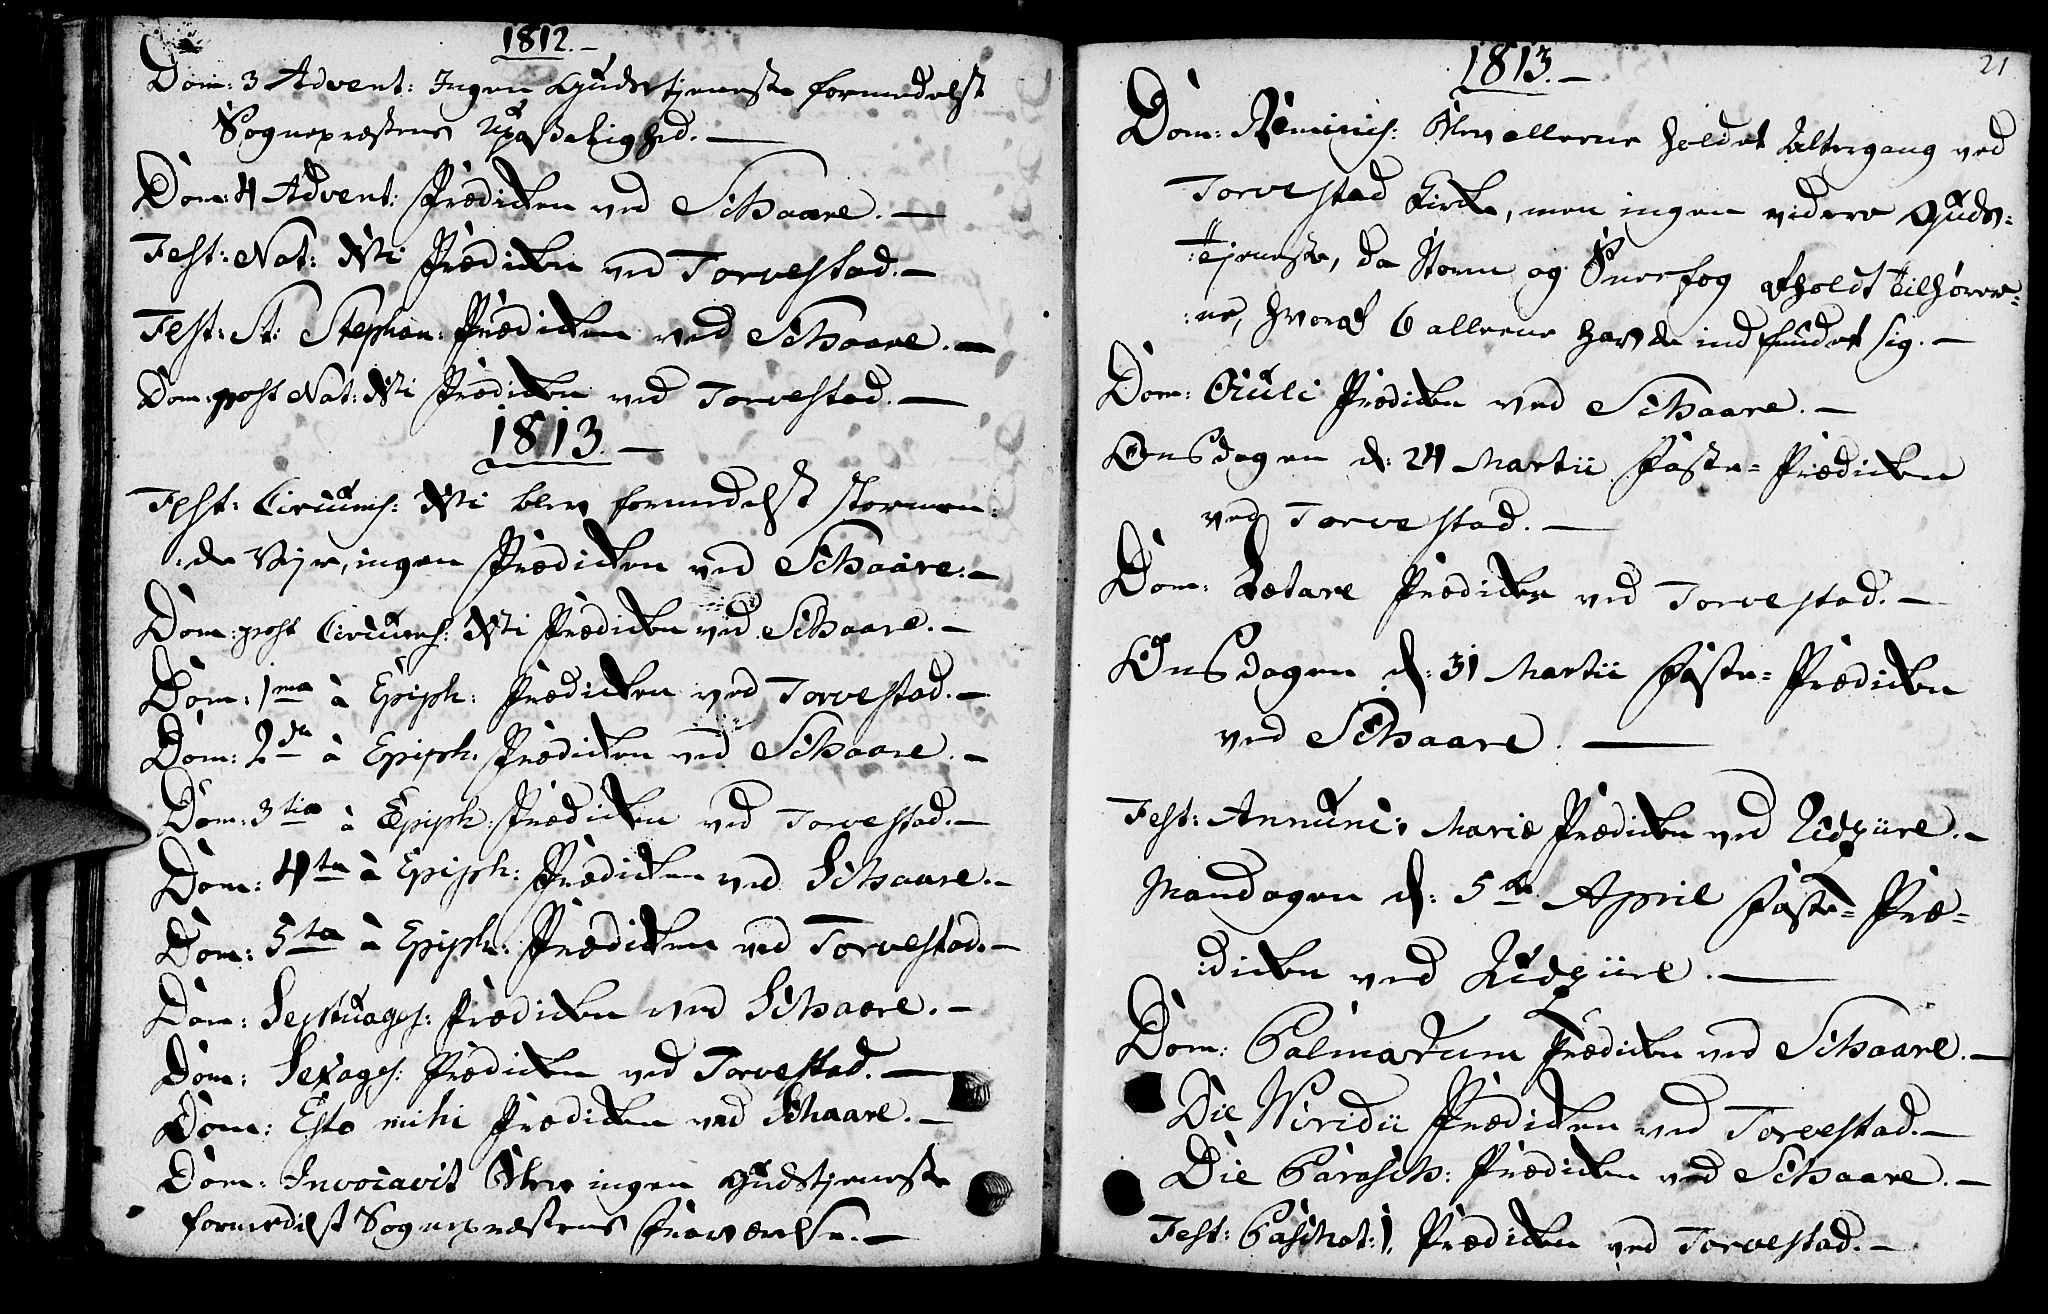 1812.-
Dom: 3 Advent: Ingen Gudstjeneste formedelst
Sognepræstens Upasselighed. —
Dom: 4 Advent: Prædicken ved Schaare. —
Fest: Nat: Xsti Prædicken ved Torvestad. —
Fest: St: Stephan: Prædicken ved Schaare. —
Dom: post Nat: Xsti Prædicken ved Torvestad. —
1813. —
Fest: Circumcis: Xsti blev formedelst stormen:
:de Vejr, ingen Prædicken ved Schaare. —
Dom: post Circumcis: Xsti Prædicken ved Schaare. —
Dom: 1ma à Epiph: Prædicken ved Torvestad. —
Dom: 2da à Epiph: Prædicken ved Schaare. —
Dom: 3tia à Epiph: Prædicken ved Torvestad. —
Dom: 4ta à Epiph: Prædicken ved Schaare. —
Dom: 5ta à Epiph: Prædicken ved Torvestad. —
Dom: Septuages: Prædicken ved Schaare. —
Dom: Sexages: Prædicken ved Torvestad. —
Dom: Esto mihi Prædicken ved Schaare. —
Dom: Invocavit blev ingen Gudstjeneste
formedelst Sognepræstens Fraværelse. —
1813. —
21
Dom: Reminis: blev alleene holdet Altergang ved
Torvestad Kirke, men ingen videre Guds:
:tjeneste, da Storm og Sneefog afholdt Tilhører:
:ne, hvoraf 6 alleene havde indfundet sig. —
Dom: Oculi Prædicken ved Schaare. —
Onsdagen d: 24 Martii Faste= Prædicken
ved Torvestad. —
Dom: Lætare Prædicken ved Torvestad. —
Onsdagen d: 31 Martii Faste= Prædicken
ved Schaare. —
Fest: Annunc: Mariæ Prædicken ved Udziire. —
Mandagen d: 5te April Faste= Præ=
:dicken ved Udziire. —
Dom: Palmarum Prædicken ved Schaare. —
Die Viridii Prædicken ved Torvestad. —
Die Parasch: Prædicken ved Schaare. —
Fest: Paschat: 1. Prædicken ved Torvestad. —